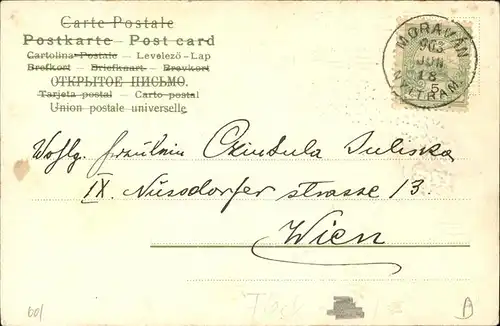 Carte Postale
Postkarte — Post card
Cartolina Postale — Levelező-Lap
Brefkort — Briefkaart — Brevkort
ОТКРЫТОЕ ПИСЬМО.
Tarjeta postal — Carto postal
Union postale universelle
MORAVÁN
903
JUN
18
5
NYITRAM
Wohlg. Fräulein Czintula Juliska
IX. Nusodorfer strasse 13.
Wien
60/
A